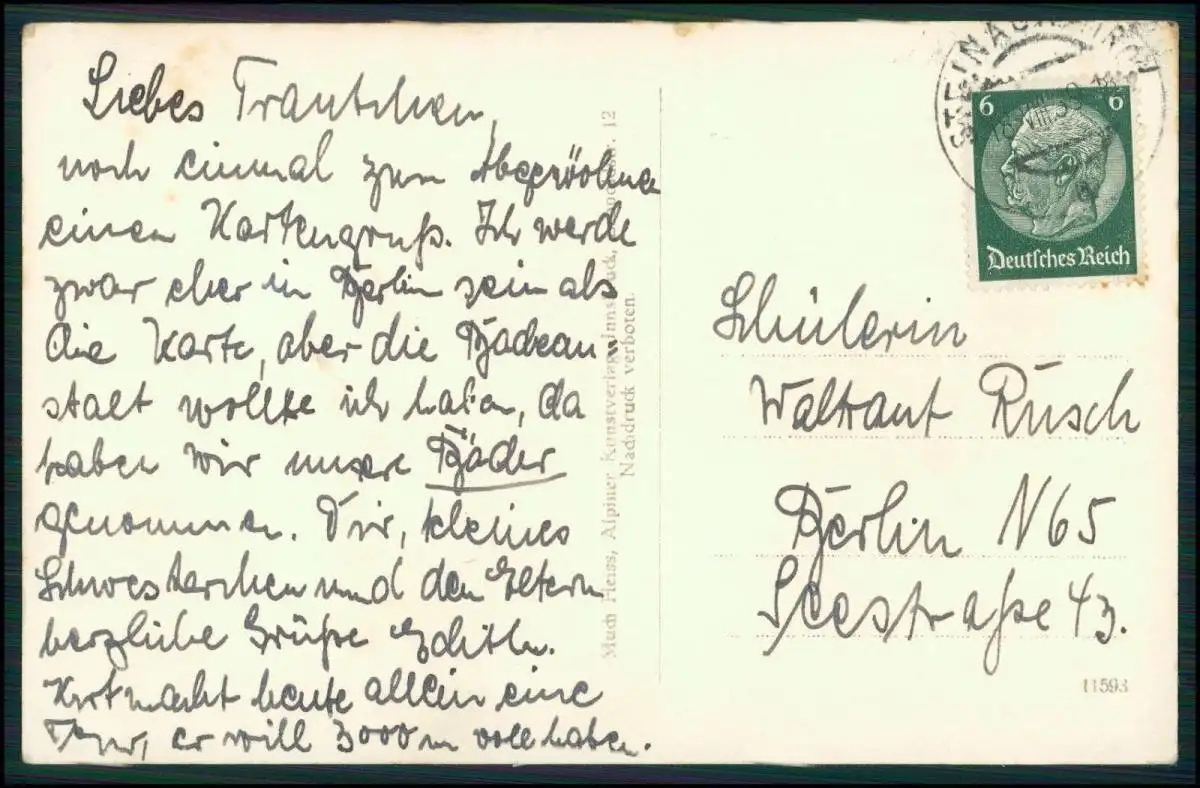 Liebes Trautchen,
noch einmal zum Abgewöhnen
einen Kartengruß. Ich werde
zwar eher in Berlin sein als
die Karte, aber die Badean-
stalt wollte ich haben, da
haben wir unsere Bäder
genommen. Dir, kleines
Schwesterchen und den Eltern
herzliche Grüße Edith.
Kurt macht heute allein eine
Tour, er will 3000 m voll haben.
Much Heiss, Alpiner Kunstverlag, Innsbruck, 12
Nachdruck verboten.
STEINACH
VIII 39
6 6
Deutsches Reich
Schülerin
Waltraut Rüsch
Berlin N 65
Seestraße 43.
11593